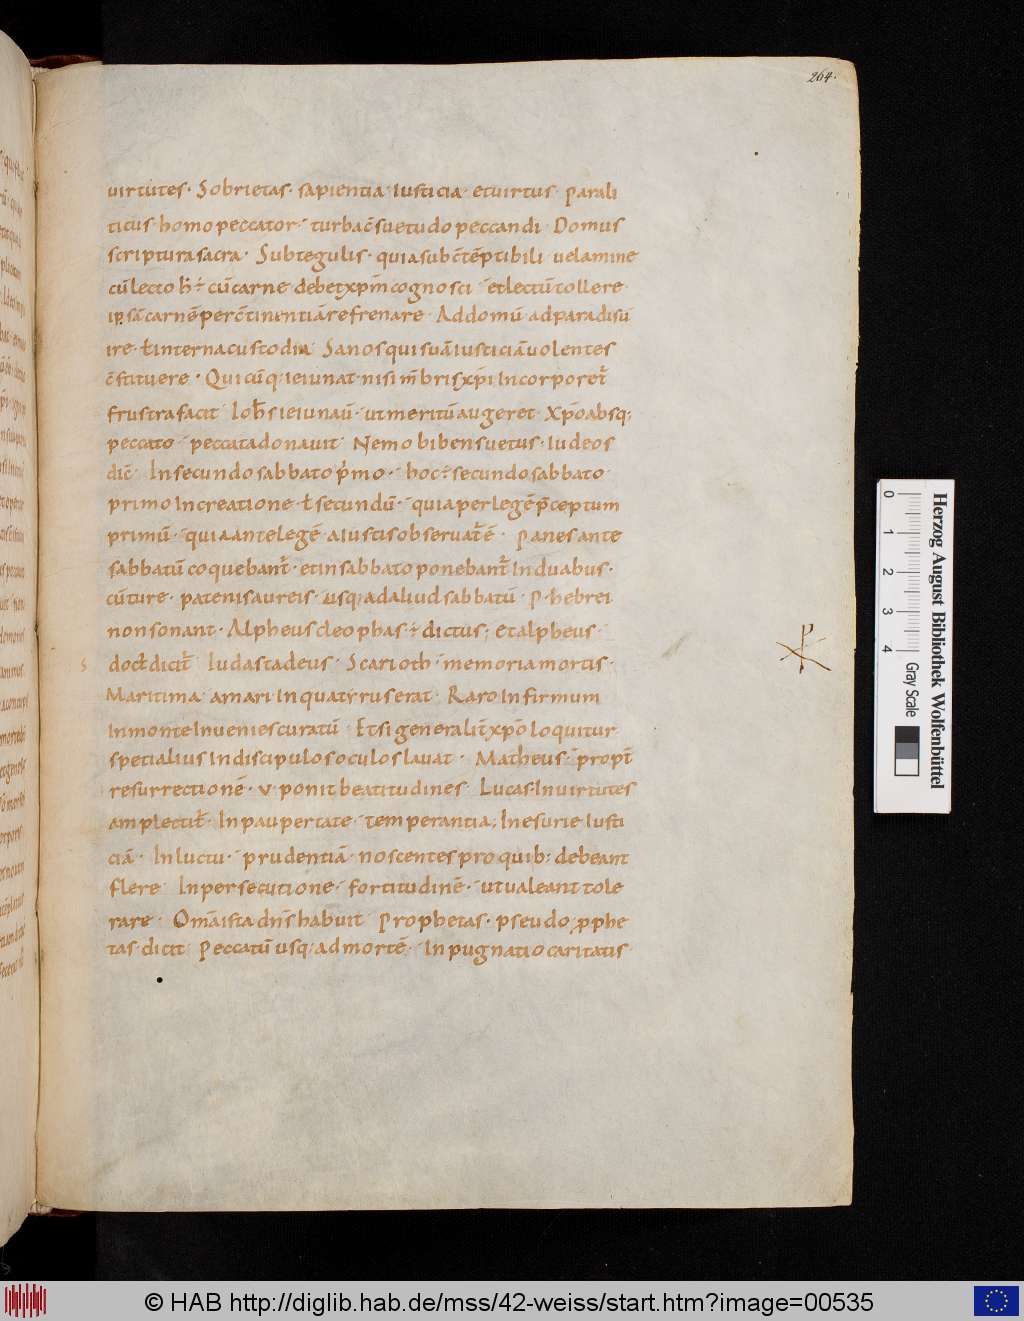 264.
uirtutes· Sobrietas· sapientia· iusticia· et uirtus· parali
ticus· homo peccator· turba c̄suetudo peccandi· Domus
scriptura sacra· Subtegulis· quia sub c̄tēptibili uelamine
cū lecto· cū carne debet xp̄m cognosci· et lectū tollere
carnē per c̄tinentiā refrenare· Addomū· ad paradisū
ire· ł interna custodia· Sanos qui suā iusticiā uolentes
c̄stituere· Quicūq; ieiunat· nisi mēbris xp̄i incorporet̄
frustra facit· ieiunau̅· ut meritū augeret· Xp̄o absq;
peccato· peccata donauit· Nemo bibens uetus· iudeos
dic̄· In secundo sabbato p̄mo· secundo sabbato
primo in creatione· ł secundū· quia per legē p̄ceptum
primū· quia ante legē· a iustis obseruat̄ ē· panes ante
sabbatū coquebant̄· et in sabbato ponebant̄ in duabus·
patenis aureis· usq; ad aliud sabbatū· hebrei
non sonant· Alpheus cleophas· dictus; et alpheus·
Iudas tadeus· Scarioth· memoria mortis·
Maritima· amari in qua tyrus erat· Raro infirmum
in monte inuenies curatū· Et si generalit̄ xp̄o loquitur
specialius in discipulos oculos lauat· Matheus· propt̄
resurrectionē· v· ponit beatitudines· Lucas· in uirtutes
amplectit̄· In paupertate· temperantia; In esurie iusti
ciā· In luctu· prudentiā· noscentes pro quib; debeant
flere· In persecutione· fortitudinē· ut ualeant tole
rare· Om̄a ista dn̄s habuit· Prophetas· pseudo ꝓphe
tas dicit· Peccatū usq; ad mortē· Inpugnatio caritatis·
Herzog August Bibliothek Wolfenbüttel
0 1 2 3 4 Gray Scale
© HAB http://diglib.hab.de/mss/42-weiss/start.htm?image=00535